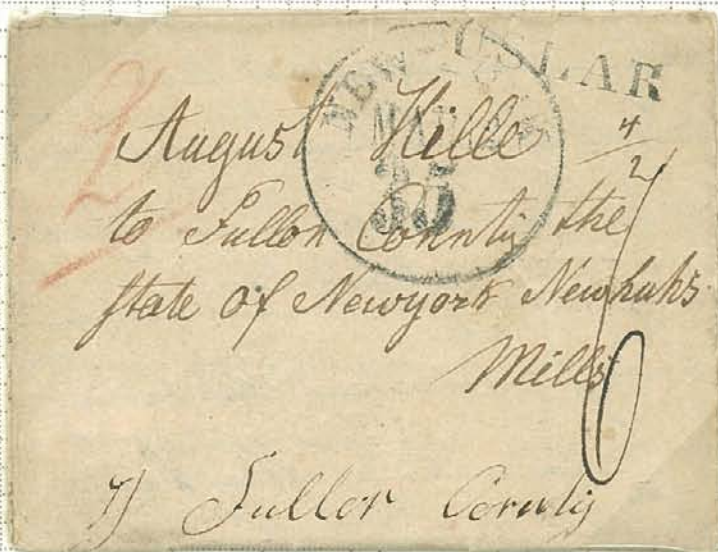 USLAR
NEW
MAR
35
August Hille
4/2
to Fullon County the
state of Newyork Newkuhs
Mills
Fuller County